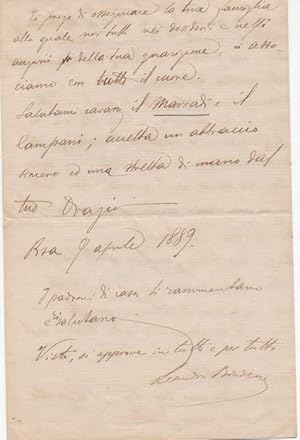 Ti prego di ossequiare la tua famiglia
alla quale noi tutti nei desideri e negli
auguri della tua guarigione, ci asso-
ciamo con tutto il cuore.
Salutami il Marradi e il
Campani; accetta un abbraccio
sincero ed una stretta di mano dal
tuo Orazio
7 aprile 1889.
I padroni di casa ti rammentano
e ti salutano
Visto, si approva in tutto e per tutto
Leandro